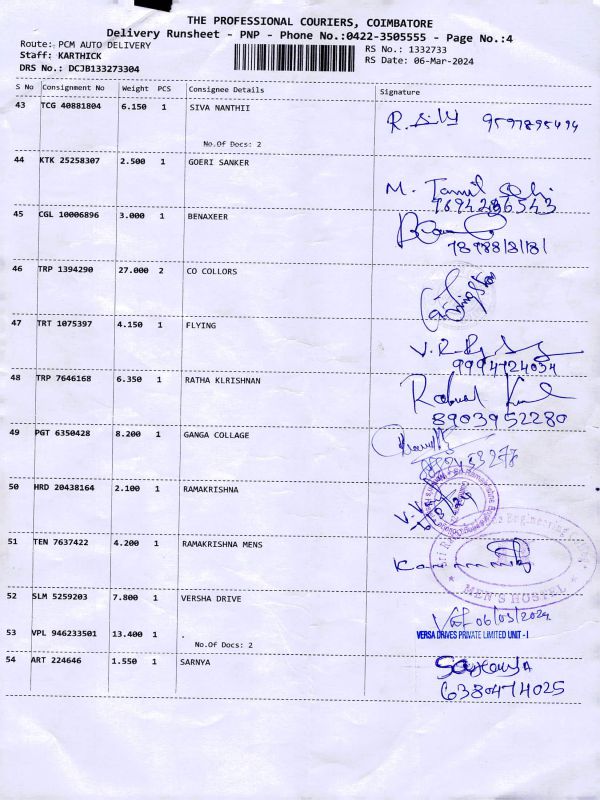 THE PROFESSIONAL COURIERS, COIMBATORE
Delivery Runsheet - PNP - Phone No.:0422-3505555 - Page No.:4
Route: PCM AUTO DELIVERY RS No.: 1332733
Staff: KARTHICK RS Date: 06-Mar-2024
DRS No.: DCJB133273304
S No Consignment No Weight PCS Consignee Details Signature
43 TCG 40881804 6.150 1 SIVA NANTHII
No.Of Docs: 2
44 KTK 25258307 2.500 1 GOERI SANKER
M. Tamil
7694286543
45 CGL 10006896 3.000 1 BENAXEER
46 TRP 1394290 27.000 2 CO COLLORS
47 TRT 1075397 4.150 1 FLYING
9994724034
48 TRP 7646168 6.350 1 RATHA KLRISHNAN
8903952280
49 PGT 6350428 8.200 1 GANGA COLLAGE
50 HRD 20438164 2.100 1 RAMAKRISHNA
51 TEN 7637422 4.200 1 RAMAKRISHNA MENS
Engineering
MEN'S HOSTEL
52 SLM 5259203 7.800 1 VERSHA DRIVE
06/03/2024
VERSA DRIVES PRIVATE LIMITED UNIT - I
53 VPL 946233501 13.400 1 .
No.Of Docs: 2
54 ART 224646 1.550 1 SARNYA
6380474025